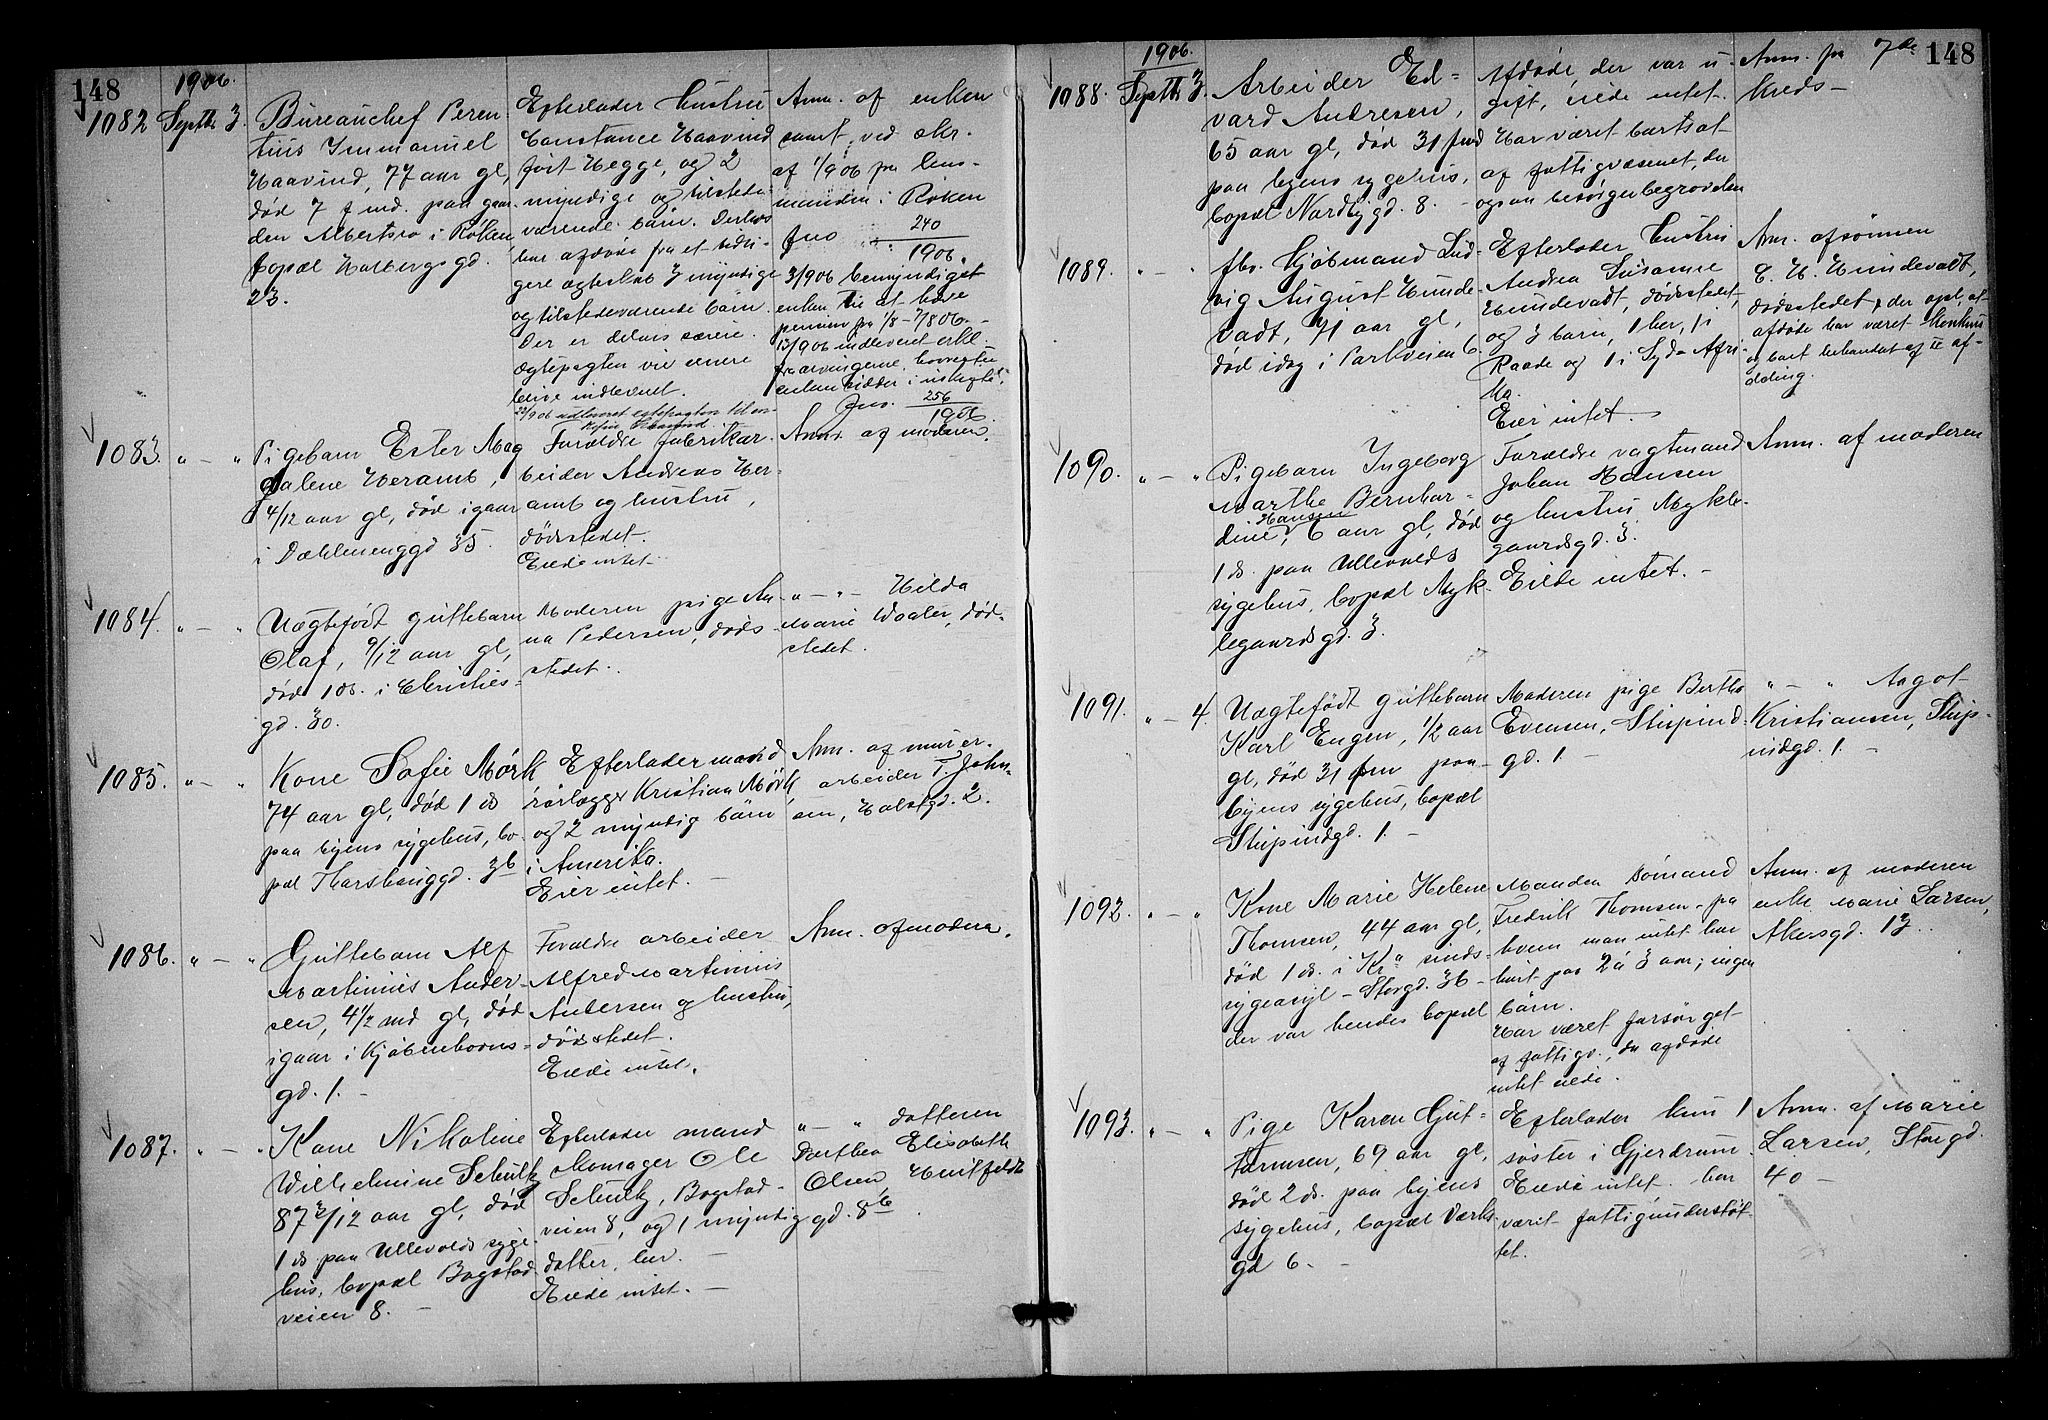 148
1906.
1082 Septbr 3.
Bureauchef Peren
tius Immanuel
Haavind, 77 aar gl,
død 7 f md. paa gaar
den Albertsro i Røken
bopæl Holbergsgd.
23.
Efterlader hustru
Constance Haavind
født Hegge, og 2
myndige og tilstede
værende børn. Desuden
har afdøde fra et tidli-
gere ægteskab 7 myndige
og tilstedeværende børn.
Der er delvis særeie.
Ægtepagten vil senere
blive indleveret.
22/9 06 udleveret ægtepagten til en-
kefru Haavind
Anm. af enken
samt ved skr.
af 1/9 06 fra lens-
manden i Røken
Jno 240
1906.
3/906 bemyndiget
enken til at hæve
pension fra 1/8 - 7/8 06. -
13/906 indleveret erkl.
fra arvingerne, hvorefter
enken sidder i uskiftet
Jno. 256
1906.
1083. " — "
Pigebarn Ester Mag
dalene Heramb,
4/12 aar gl, død igaar
i Dæhlenenggd 35.
Forældre fabrikar-
beider Andreas Her-
amb og hustru,
dødsstedet.
Eiede intet
Anm. af moderen.
1084. " — "
Uægtefødt guttebarn
Olaf, 9/12 aar gl,
død 1 ds. i Christies-
gd. 30.
Moderen pige An-
na Pedersen, døds-
stedet.
" — " — Hilda
Marie Waaler, død-
stedet.
1085. " — "
Kone Sofie Mørk
74 aar gl, død 1 ds
paa byens sygehus, bo-
pæl Thorshauggd. 36
Efterlader mand
rørlægger Kristian Mørk
og 2 myndig børn
i Amerika.
Eier intet. —
Anm. af murer-
arbeider T. John-
sen, Holstgd. 2.
1086. " — "
Guttebarn Alf
Martinius Ander-
sen, 4 1/2 md gl, død
igaar i Kjøbenhavns-
gd. 1. -
Forældre arbeider
Alfred Martinius
Andersen og hustru,
dødsstedet.
Eiede intet.
Anm. af moderen.
1087. " — "
Kone Nikoline
Wilhelmine Schultz
87 2/12 aar gl, død
1 ds paa Ullevolds syge-
hus, bopæl Bogstad
veien 8. —
Efterlader mand
skomager Ole
Schultz, Bogstad-
veien 8, og 1 myndig
datter, her. —
Eiede intet. —
" — " datteren
Dorthea Elisabeth
Olsen, Huitfeldts
gd. 8b
148
1906.
1088. Septbr 3.
Arbeider Ed-
vard Andresen,
65 aar gl, død 31 f md
paa byens sygehus,
bopæl Nordbygd. 8. -
Afdøde der var u-
gift, eiede intet.
Har været bortsat
af fattigvæsenet, der
ogsaa besørger begravelsen
Anm. fra 7de
kreds -
1089. " — "
fhv. Kjøbmand Lud-
vig August Hunde-
vadt, 71 aar gl,
død idag i Parkveien 6.
Efterlader hustru
Andrea Susanne
Hundevadt, dødsstedet,
og 3 børn, 1 her, 1 i
Raade og 1 i Syd-Afri-
ka.
Eier intet.
Anm. af sønnen
C. H. Hundevadt,
dødsstedet, der opl. at
afdøde har været Konkurs
og boet behandlet af II af-
deling.
1090. " — "
Pigebarn Ingeborg
Marthe Bernhar-
dine Hansen, 6 aar gl, død
1 ds. paa Ullevolds
sygehus, bopæl Myk-
legaardsgd. 3.
Forældre vagtmand
Johan Hansen
og hustru Mykle-
gaardsgd. 3.
Eiede intet. -
Anm. af moderen
1091. " — 4.
Uægtefødt guttebarn
Karl Eugen, 1/2 aar
gl, død 31 f m paa
byens sygehus, bopæl
Stupindgd. 1. -
Moderen pige Bertha
Evensen, Stupind
gd. 1. -
" — " Aagot
Kristiansen, Stup-
indgd. 1. -
1092. " — "
Kone Marie Helene
Thomsen, 44 aar gl,
død 1 ds. i Kra sinds-
sygeasyl - Storgd. 36 -
der var hendes bopæl
Manden sømand
Fredrik Thomsen - paa
hvem man intet har
hørt paa 2 à 3 aar; ingen
børn.
Har været forsørget
af fattigv., da afdøde
intet eiede.
Anm. af moderen
enke Marie Larsen,
Akersgd. 13.
1093. " — "
Pige Karen Gut-
tormsen, 69 aar gl,
død 2 ds. paa byens
sygehus, bopæl Værks
gd 6. -
Efterlader kun 1
søster i Gjerdrum.
Eiede intet. har
været fattigunderstøt-
tet.
Anm. af Marie
Larsen, Storgd.
40 -